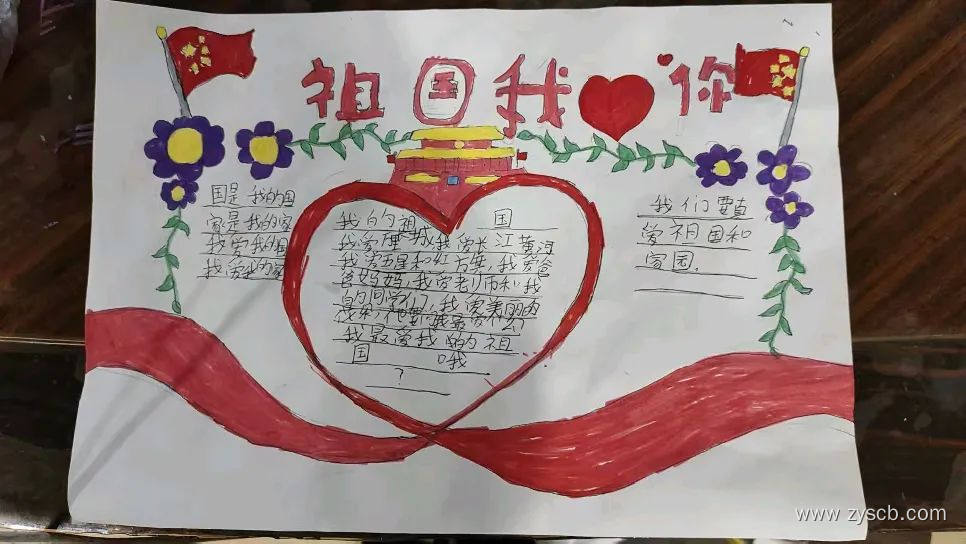 祖国我你
国是我的国
家是我的家
我爱我的国
我爱我的家
我的祖国
我爱理城我爱长江黄河
我爱五星和红方集,我爱爸
爸妈妈,我爱老师和我
的同学们,我爱美丽的
我最爱我的祖
国哦
?
我们要真
爱祖国和
家园.
www.zyscb.com